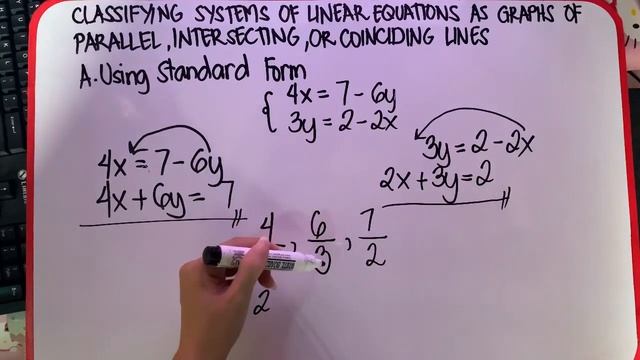 CLASSIFYING SYSTEMS OF LINEAR EQUATIONS AS GRAPHS OF
PARALLEL, INTERSECTING, OR COINCIDING LINES
A. Using Standard Form
{ 4x = 7 - 6y
3y = 2 - 2x
4x = 7 - 6y
4x + 6y = 7
3y = 2 - 2x
2x + 3y = 2
4 , 6/3 , 7/2
2